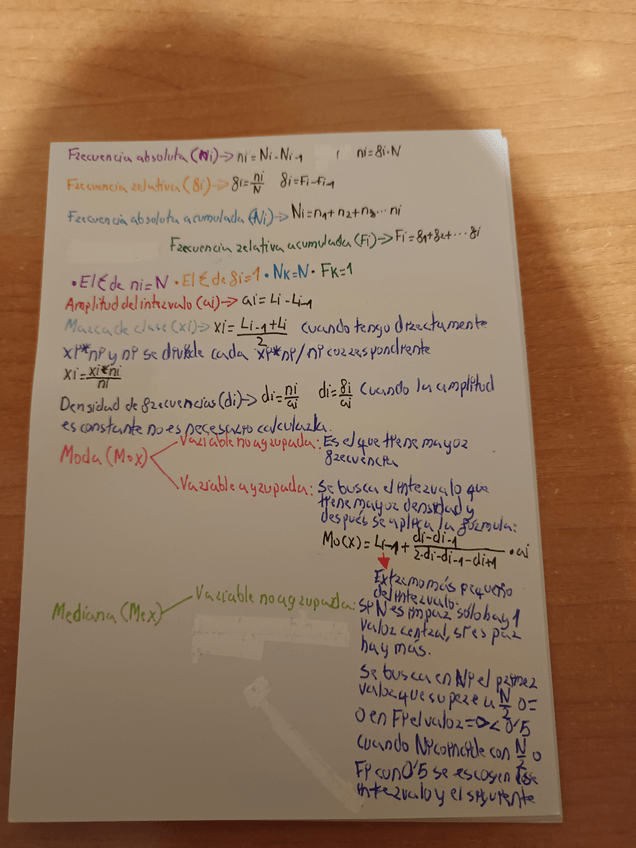 Frecuencia absoluta (Ni)→ ni = Ni - Ni-1 , ni = fi·N
Frecuencia relativa (fi)→ fi = ni/N fi = Fi - Fi-1
Frecuencia absoluta acumulada (Ni)→ Ni = n1 + n2 + n3 ... ni
Frecuencia relativa acumulada (Fi)→ Fi = f1 + f2 + ... fi
• El Σ de ni = N • El Σ de fi = 1 • Nk = N • Fk = 1
Amplitud del intervalo (ai)→ ai = Li - Li-1
Marca de clase (xi)→ xi = (Li-1 + Li)/2 cuando tengo directamente
xi*ni y ni se divide cada xi*ni/ni correspondiente
xi = xi*ni/ni
Densidad de frecuencias (di)→ di = ni/ai di = fi/ai Cuando la amplitud
es constante no es necesario calcularla.
Moda (Mox)
Variable no agrupada: Es el que tiene mayor
frecuencia
Variable agrupada: Se busca el intervalo que
tiene mayor densidad y
después se aplica la fórmula:
Mo(x) = Li-1 + (di - di-1)/(2·di - di-1 - di+1) • ai
Extremo más pequeño
del intervalo.
Mediana (Mex)
Variable no agrupada:
Si N es impar sólo hay 1
valor central, si es par
hay más.
Se busca en Ni el primer
valor que supere a N/2 o =
o en Fi el valor => < 0'5
Cuando Ni coincide con N/2 o
Fi con 0'5 se escogen ese
intervalo y el siguiente